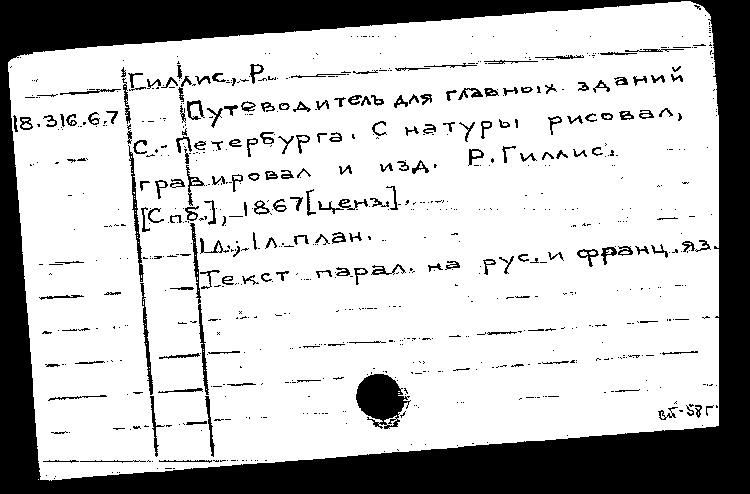 Гиллис, Р.
18.316.6.7
Путеводитель для главных зданий
С.-Петербурга. С натуры рисовал,
гравировал и изд. Р. Гиллис.
[Спб.], 1867 [ценз.].
1 л.; 1 л. план.
Текст парал. на рус. и франц. яз.